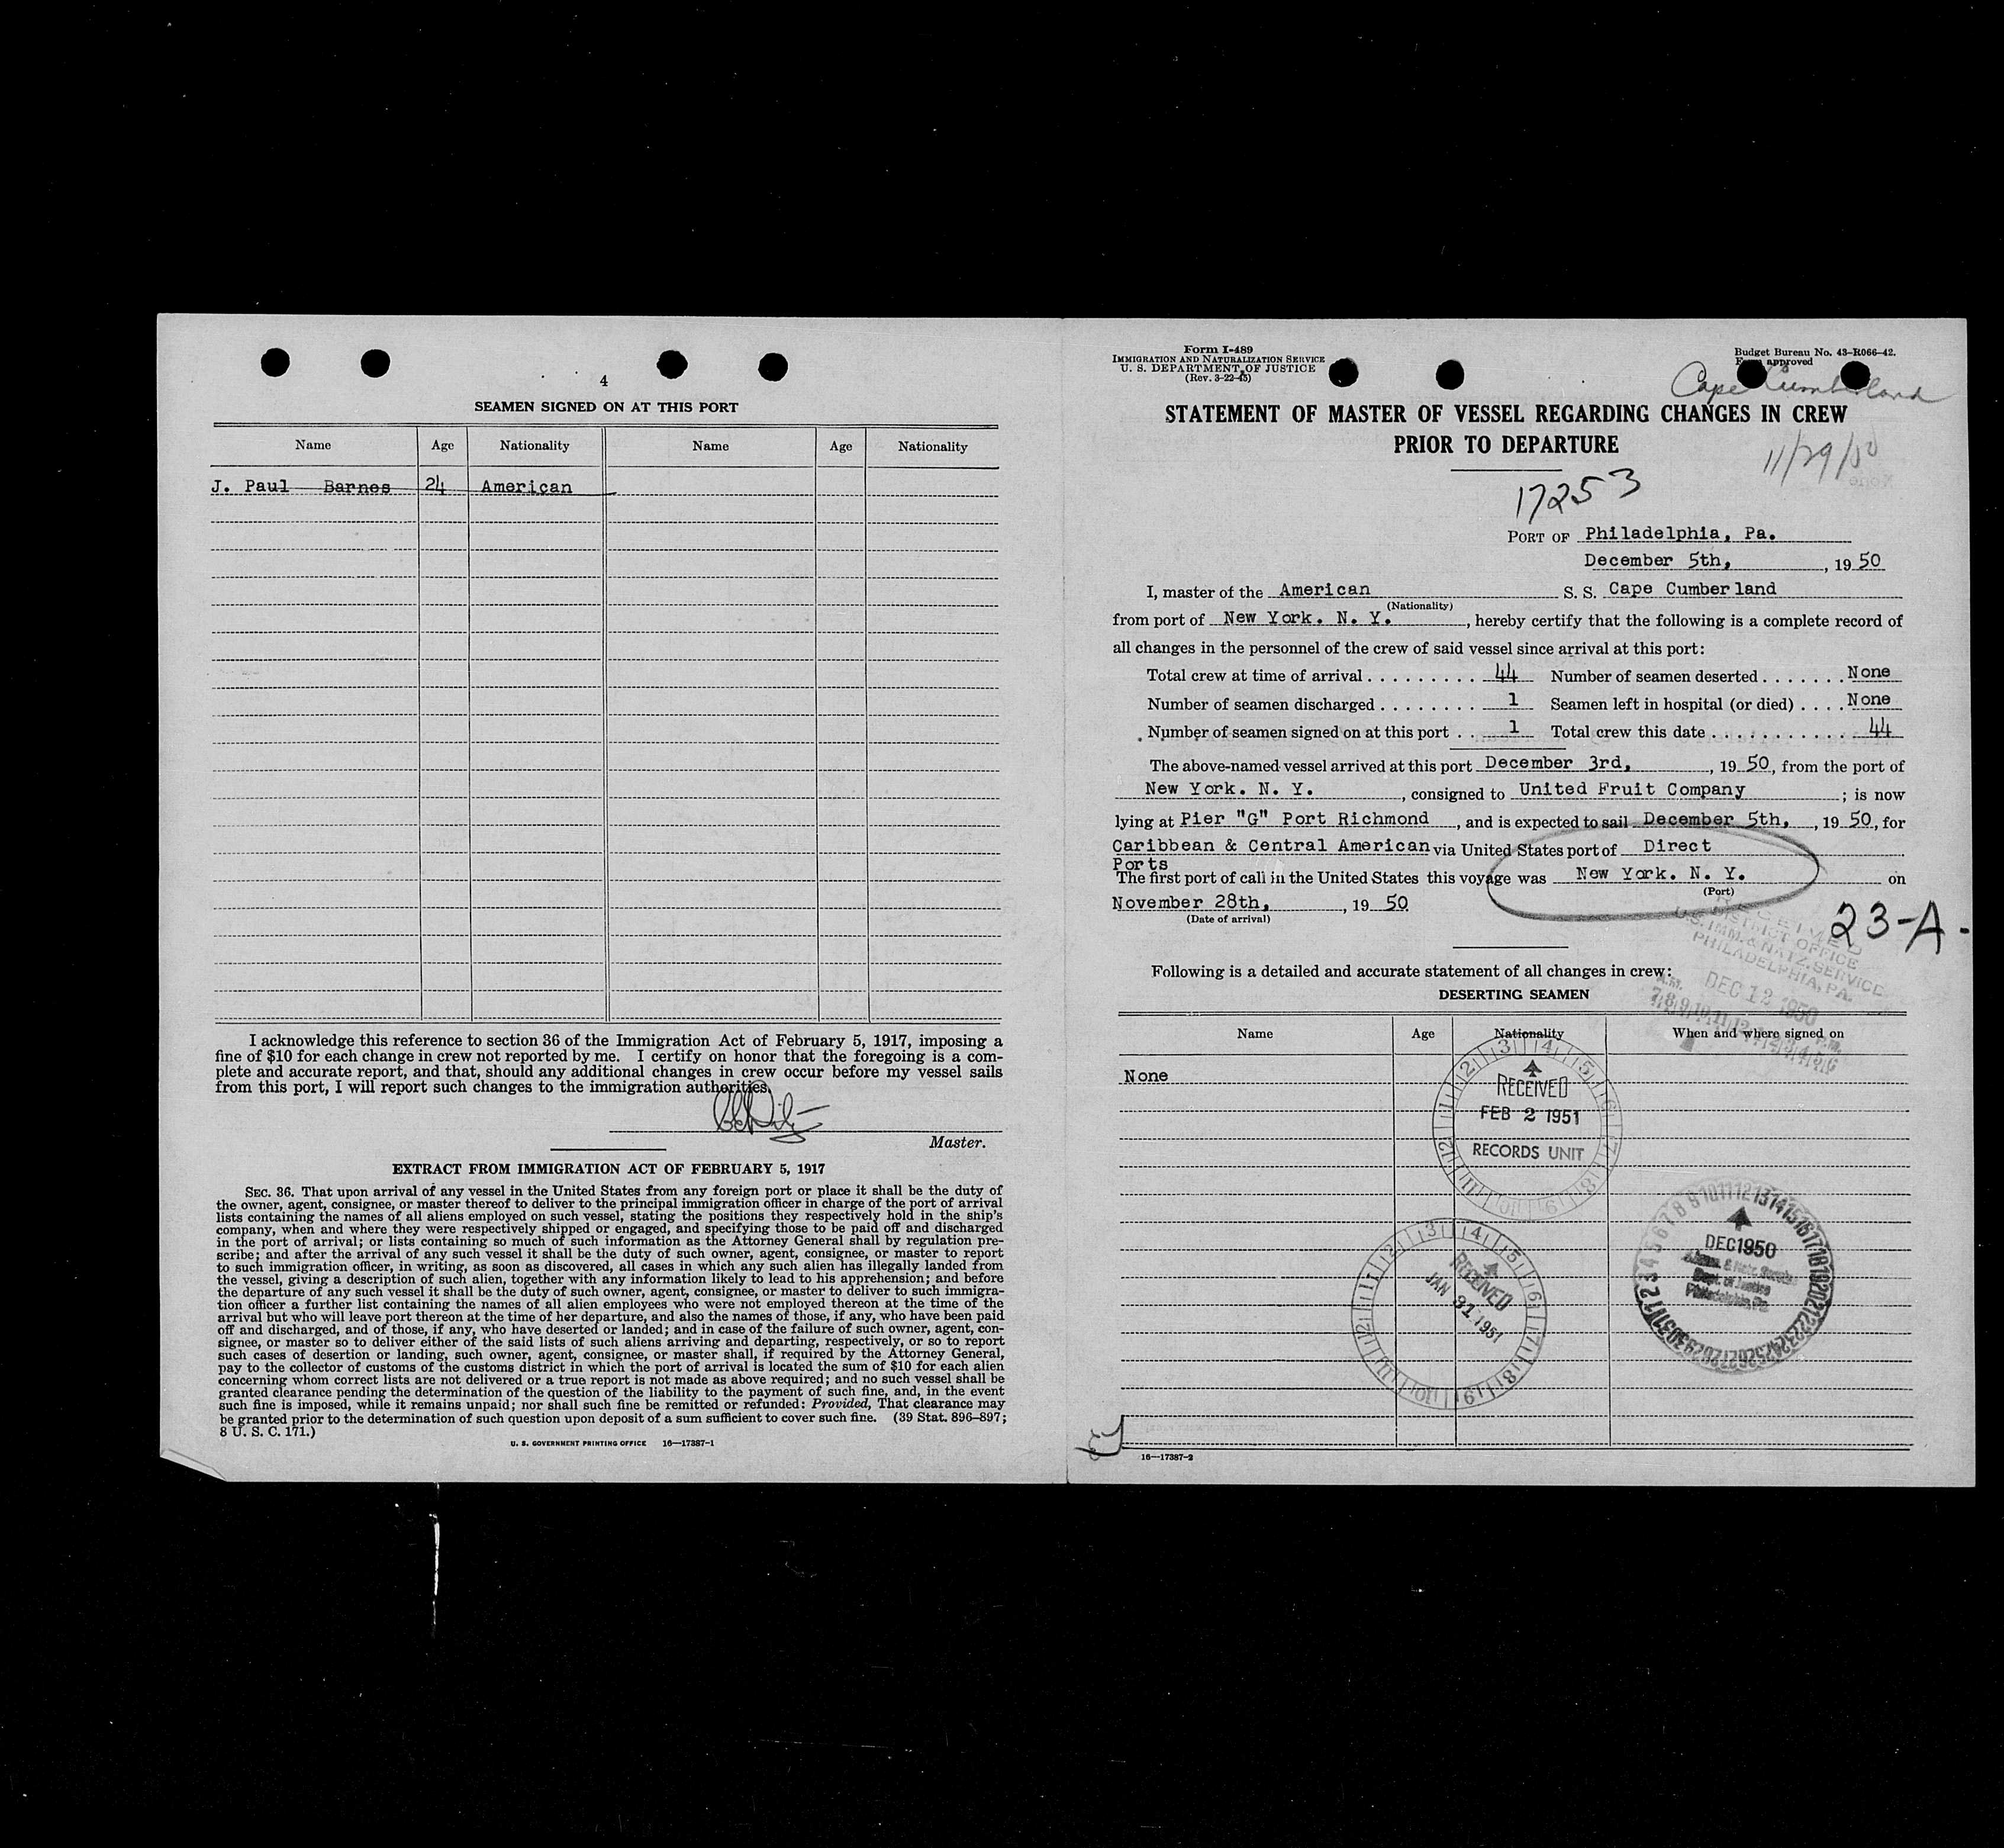 4
SEAMEN SIGNED ON AT THIS PORT
Name Age Nationality Name Age Nationality
J. Paul Barnes 24 American
I acknowledge this reference to section 36 of the Immigration Act of February 5, 1917, imposing a
fine of $10 for each change in crew not reported by me. I certify on honor that the foregoing is a com-
plete and accurate report, and that, should any additional changes in crew occur before my vessel sails
from this port, I will report such changes to the immigration authorities.
Master.
EXTRACT FROM IMMIGRATION ACT OF FEBRUARY 5, 1917
SEC. 36. That upon arrival of any vessel in the United States from any foreign port or place it shall be the duty of
the owner, agent, consignee, or master thereof to deliver to the principal immigration officer in charge of the port of arrival
lists containing the names of all aliens employed on such vessel, stating the positions they respectively hold in the ship's
company, when and where they were respectively shipped or engaged, and specifying those to be paid off and discharged
in the port of arrival; or lists containing so much of such information as the Attorney General shall by regulation pre-
scribe; and after the arrival of any such vessel it shall be the duty of such owner, agent, consignee, or master to report
to such immigration officer, in writing, as soon as discovered, all cases in which any such alien has illegally landed from
the vessel, giving a description of such alien, together with any information likely to lead to his apprehension; and before
the departure of any such vessel it shall be the duty of such owner, agent, consignee, or master to deliver to such immigra-
tion officer a further list containing the names of all alien employees who were not employed thereon at the time of the
arrival but who will leave port thereon at the time of her departure, and also the names of those, if any, who have been paid
off and discharged, and of those, if any, who have deserted or landed; and in case of the failure of such owner, agent, con-
signee, or master so to deliver either of the said lists of such aliens arriving and departing, respectively, or so to report
such cases of desertion or landing, such owner, agent, consignee, or master shall, if required by the Attorney General,
pay to the collector of customs of the customs district in which the port of arrival is located the sum of $10 for each alien
concerning whom correct lists are not delivered or a true report is not made as above required; and no such vessel shall be
granted clearance pending the determination of the question of the liability to the payment of such fine, and, in the event
such fine is imposed, while it remains unpaid; nor shall such fine be remitted or refunded: Provided, That clearance may
be granted prior to the determination of such question upon deposit of a sum sufficient to cover such fine. (39 Stat. 896–897;
8 U. S. C. 171.)
U. S. GOVERNMENT PRINTING OFFICE 16—17387-1
Form I-489
IMMIGRATION AND NATURALIZATION SERVICE
U. S. DEPARTMENT OF JUSTICE
(Rev. 3-22-45)
Budget Bureau No. 43-R066-42.
Form approved
Cape Cumberland
STATEMENT OF MASTER OF VESSEL REGARDING CHANGES IN CREW
PRIOR TO DEPARTURE
11/29/50
17253
PORT OF Philadelphia, Pa.
December 5th, , 19 50
I, master of the American S. S. Cape Cumberland
(Nationality)
from port of New York. N. Y. , hereby certify that the following is a complete record of
all changes in the personnel of the crew of said vessel since arrival at this port:
Total crew at time of arrival . . . . . . . . . 44 Number of seamen deserted . . . . . . . None
Number of seamen discharged . . . . . . . . 1 Seamen left in hospital (or died) . . . . None
Number of seamen signed on at this port . . 1 Total crew this date . . . . . . . . . . . 44
The above-named vessel arrived at this port December 3rd, , 19 50, from the port of
New York. N. Y. , consigned to United Fruit Company ; is now
lying at Pier "G" Port Richmond , and is expected to sail December 5th, , 19 50, for
Caribbean & Central American via United States port of Direct
Ports
The first port of call in the United States this voyage was New York. N. Y. on
(Port)
November 28th, , 19 50
(Date of arrival)
23-A.
RECEIVED
DISTRICT OFFICE
U.S. IMM. & NATZ. SERVICE
PHILADELPHIA, PA.
A.M. DEC 12 1950 P.M.
7,8,9,10,11,12,1,2,3,4,5,6
Following is a detailed and accurate statement of all changes in crew:
DESERTING SEAMEN
Name Age Nationality When and where signed on
None
RECEIVED
FEB 2 1951
RECORDS UNIT
1 2 3 4 5 6 7 8 9 10 11 12
DEC 1950
Immg. & Natz. Service
Dept. of Justice
Philadelphia, Pa.
RECEIVED
JAN 31 1951
1 2 3 4 5 6 7 8 9 10 11 12
16—17387-2